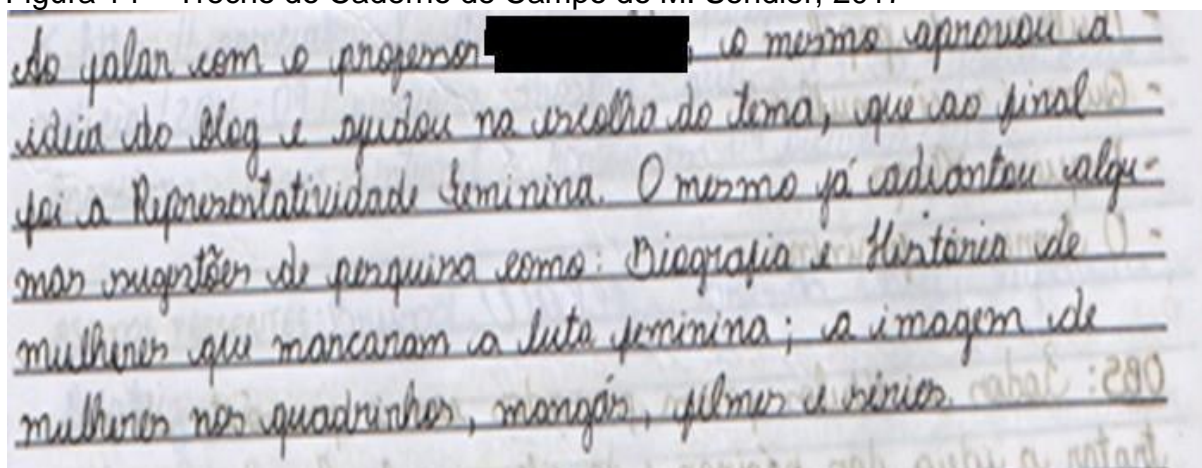 Ao falar com o professor , o mesmo aprovou a
ideia do blog e ajudou na escolha do tema, que ao final
foi a Representatividade feminina. O mesmo já adiantou algu-
mas sugestões de pesquisa como: Biografia e História de
mulheres que marcaram a luta feminina; a imagem de
mulheres nos quadrinhos, mangás, filmes e séries.